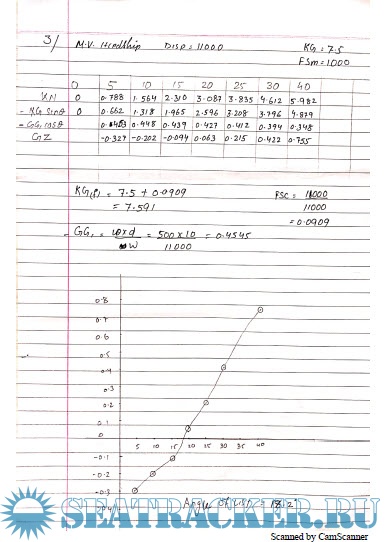 3/ M.V. Headship DISP = 11000 KG = 7.5
FSm = 1000
0 5 10 15 20 25 30 40
KN 0 0.788 1.564 2.310 3.087 3.835 4.612 5.982
- KG sinθ 0 0.662 1.318 1.965 2.596 3.208 3.796 4.879
- GG₁ cosθ 0.453 0.448 0.439 0.427 0.412 0.394 0.348
GZ -0.327 -0.202 -0.094 0.063 0.215 0.422 0.755
KG(f) = 7.5 + 0.0909 FSC = 1000
= 7.591 11000
= 0.0909
- GG₁ = w x d = 500 x 10 = 0.4545
W 11000
0.8
0.7
0.6
0.5
0.4
0.3
0.2
0.1
0
5 10 15 20 25 30 35 40
-0.1
-0.2
-0.3
Angle of List = 18.2°
SEATRACKER.RU
Scanned by CamScanner